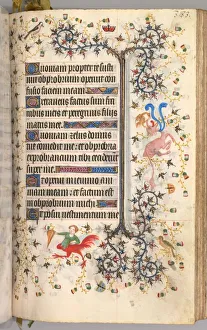 Quoniam propter te susti
nui obprobrium operuit con
fusio faciem meam.
Extraneus factus sum fra
tribus meis et peregrinus filiis
matris mee.
me et obprobria
exprobrantium tibi ceciderunt
super me.
in ieiunio ani
mam meam et factum est
in obprobrium michi.
Et posui vestimentum me